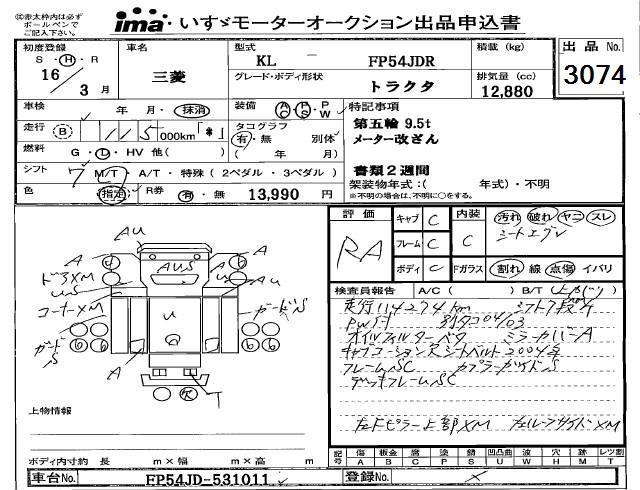 ※赤太枠内は必ず
ボールペンで
ご記入下さい。
ima・いすゞモーターオークション出品申込書
初度登録
S・H・R
16
3月
車名
三菱
型式
KL - FP54JDR
グレード・ボディ形状
トラクタ
積載 (kg)
排気量 (cc)
12,880
出品No.
3074
車検
年 月・抹消
走行 B
000km「*」
燃料
G・D・HV 他( )
シフト
7 M/T・A/T・特殊(2ペダル・3ペダル)
色
指定
R券
有・無
13,990円
装備
A P P
C S W
タコグラフ
有・無 別体
( 年 月)
特記事項
第五輪 9.5t
メーター改ざん
書類2週間
架装物年式:( 年式)・不明
※不明の場合は、不明に○をする。
評価
RA
キャブ C
フレーム C
ボディ C
内装
C
汚れ 破れ ヤニ スレ
シートエグレ
Fガラス
割れ 線 点傷 イバリ
検査員報告 A/C( ) B/T( )
走行114274km シフト7段
オイルフィルターベタ ミラーカバーA
シートベルト2004年
フレームSC カプラーガイドS
デッキフレームSC
左ドピラー上部XM 左ルーフサイドXM
AU
A
AUS
A
ドアXM
US
AU
コーナーXM
U
ガードS
ガードS
A
T
上物情報
ボディ内寸約 長 m×幅 m×高 m
記号
傷 A
板金 B
腐 C
塗 P
錆 S
凹凸曲 U
波 W
穴 H
跡 M
レツ割 T
車台No. FP54JD-531011
登録No.